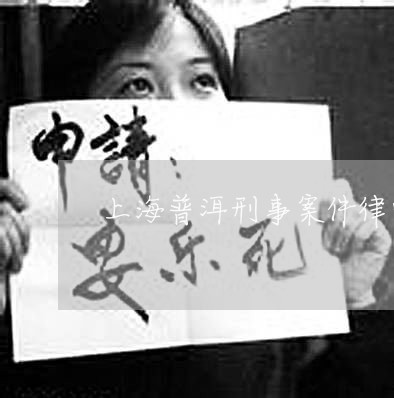 申請：
上海普洱刑事案件律
安乐死